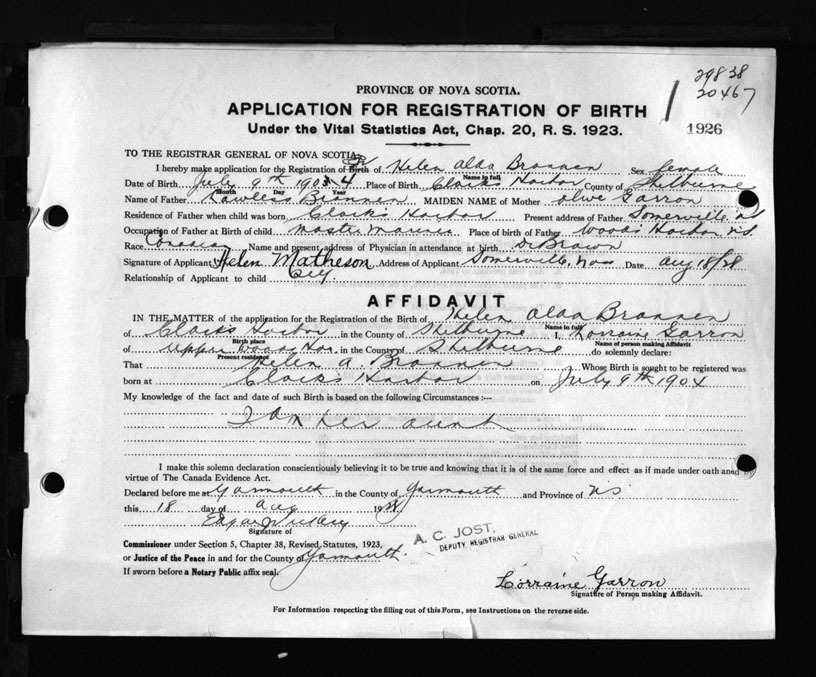 29838
20467
PROVINCE OF NOVA SCOTIA.
APPLICATION FOR REGISTRATION OF BIRTH
Under the Vital Statistics Act, Chap. 20, R. S. 1923.
1926
TO THE REGISTRAR GENERAL OF NOVA SCOTIA
I hereby make application for the Registration of Birth of Helen Alda Brannen Sex female
Name in full
Date of Birth July 9th 1904 Place of Birth Clarks Harbor County of Shelburne
Month Day Year
Name of Father Lawless Brannen MAIDEN NAME of Mother Olive Garron
Residence of Father when child was born Clark's Harbor Present address of Father Somerville
Occupation of Father at Birth of child master mariner Place of birth of Father Woods Harbor N.S.
Race Canadian Name and present address of Physician in attendance at birth Dr Brown
Signature of Applicant Helen Matheson Address of Applicant Somerville, Mass Date Aug 18/28
Relationship of Applicant to child
AFFIDAVIT
IN THE MATTER of the application for the Registration of the Birth of Helen Alda Brannen
Name in full
of Clarks Harbor in the County of Shelburne I, Lorraine Garron
Birth place Name of person making Affidavit
of Upper Woods Har. in the County of Shelburne do solemnly declare:
Present residence
That Helen A. Brannen Whose Birth is sought to be registered was
born at Clark's Harbor on July 9th 1904
My knowledge of the fact and date of such Birth is based on the following Circumstances :—
I am her aunt
I make this solemn declaration conscientiously believing it to be true and knowing that it is of the same force and effect as if made under oath and by
virtue of The Canada Evidence Act.
Declared before me at Yarmouth in the County of Yarmouth and Province of N.S.
this 18 day of Aug 1928
Edgar
Signature of
A. C. JOST,
DEPUTY REGISTRAR GENERAL
Commissioner under Section 5, Chapter 38, Revised Statutes, 1923,
or Justice of the Peace in and for the County of Yarmouth.
If sworn before a Notary Public affix seal.
Lorraine Garron
Signature of Person making Affidavit.
For Information respecting the filling out of this Form, see Instructions on the reverse side.